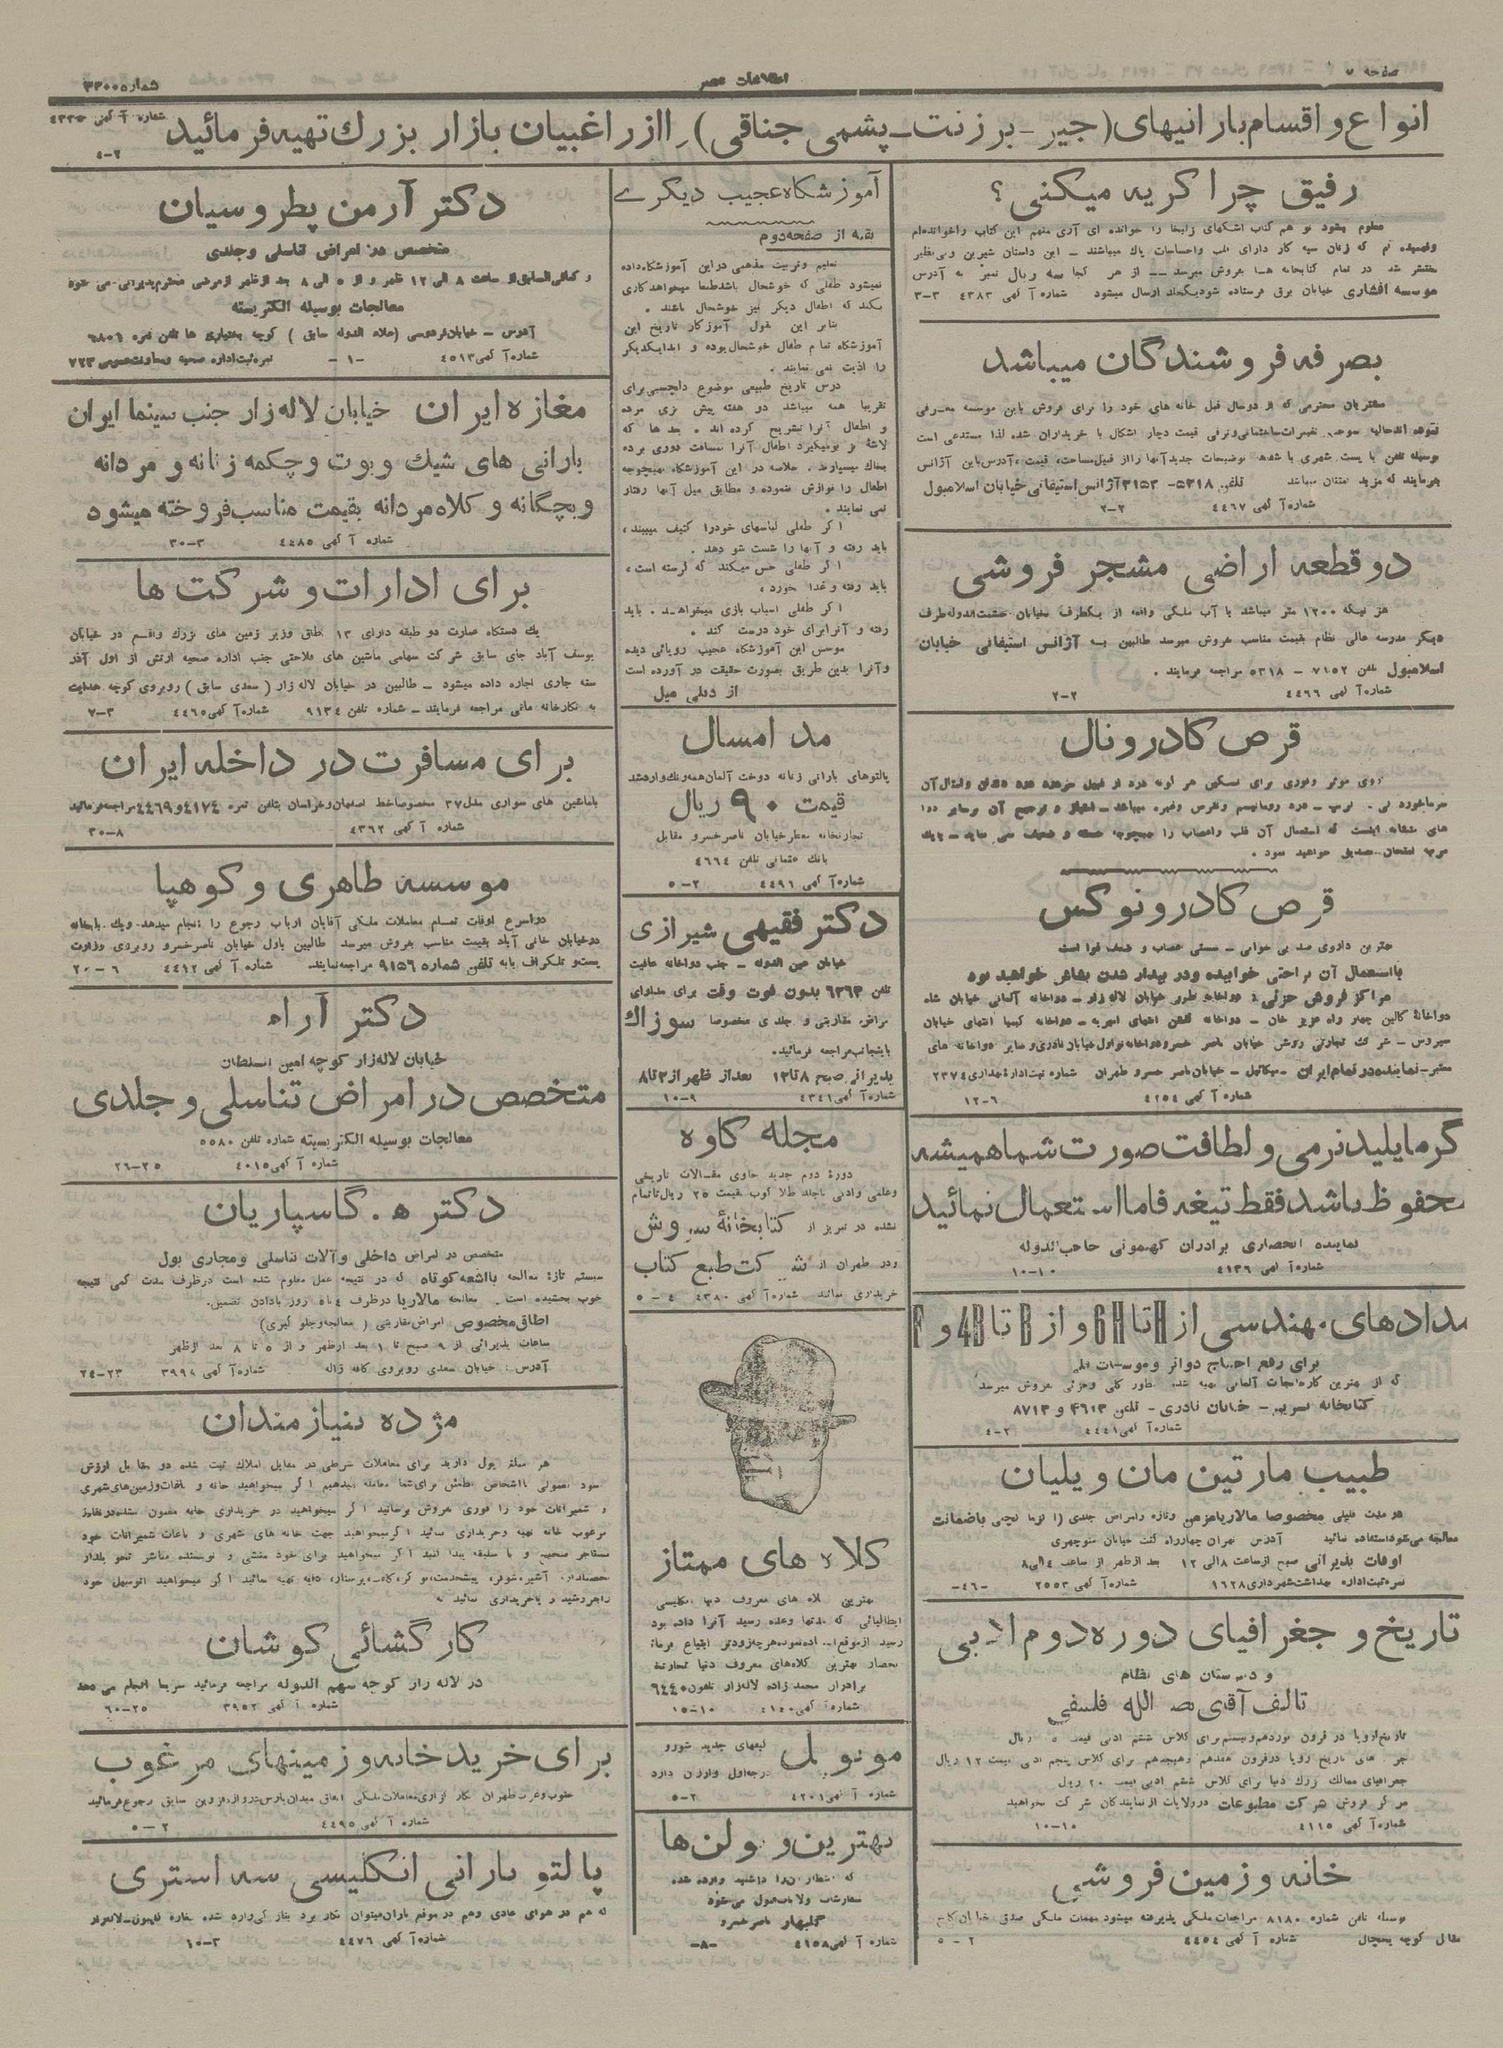 صفحه ۷
اطلاعات عصر
شماره ۳۳۰۰
انواع و اقسام بارانیهای (جیر - برزنت - پشمی جناقی) را از راغبیان بازار بزرك تهیه فرمائید
شماره آگهی
۴-۲
رفیق چرا گریه میکنی؟
معلوم میشود تو هم کتاب اشکهای زلیخا را خوانده ای آری منهم این کتاب را خوانده‌ام
و فهمیده ام که زنان سیه کار دارای قلب و احساسات پاك میباشند - این داستان شیرین و بی‌نظیر
منتشر شد در تمام کتابخانه ها بفروش میرسد -- از هر کجا سه ریال تمبر به آدرس
موسسه افشاری خیابان برق فرستاده شود یکجلد ارسال میشود شماره آگهی ۴۳۸۳ ۳-۳
بصرفه فروشندگان میباشد
مشتریان محترمی که از دو سال قبل خانه های خود را برای فروش باین موسسه معرفی
نموده اند
تغییرات ساختمانی و ترقی قیمت دچار اشکال با خریداران شده لذا مستدعی است
بوسیله تلفن یا پست شهری یا شفاهی توضیحات جدید آنها را از قبیل مساحت، قیمت، آدرس باین آژانس
بفرمایند که مزید امتنان میباشد تلفن ۵۳۱۸-۳۱۵۳ آژانس استیفانی خیابان اسلامبول
شماره آگهی ۴۴۶۷ ۲-۲
دو قطعه اراضی مشجر فروشی
هر تیکه ۱۲۰۰ متر میباشد با آب ملکی واقعه از یکطرف بخیابان حشمت‌الدوله طرف
دیگر مدرسه عالی نظام بقیمت مناسب بفروش میرسد طالبین به آژانس استیفانی خیابان
اسلامبول تلفن ۷۱۵۲ - ۵۳۱۸ مراجعه فرمایند.
شماره آگهی ۴۴۶۶ ۲-۲
قرص کادرونال
دوای موثر و فوری برای تسکین هر گونه درد از قبیل سردرد درد دندان و امثال آن
سرماخوردگی، گریپ - درد روماتیسم و نقرس وغیره میباشد - امتیاز و ترجیح آن بر سایر دوا
های مشابه اینست که استعمال آن قلب و اعصاب را بهیچوجه خسته و ضعیف نمی نماید - با یك
مرتبه امتحان تصدیق خواهید نمود.
قرص کادرونوکس
بهترین داروی ضد بی خوابی - سستی اعصاب و ضعف قوا است
با استعمال آن براحتی خوابیده و در بیدار شدن بشاش خواهید بود
مراکز فروش جزئی: دواخانه نظری خیابان لاله زار - دواخانه آلمانی خیابان شاه
دواخانهٔ کالین چهار راه عزیز خان - دواخانه گلشن انتهای امیریه - دواخانه کیمیا انتهای خیابان
سیروس - شرکت تجارتی روشن خیابان ناصر خسرو دواخانه نو اول خیابان نادری و سایر دواخانه های
معتبر - نماینده در تمام ایران - میکائیل - خیابان ناصر خسرو طهران شماره ثبت ادارهٔ بهداری ۲۳۷۴
شماره آگهی ۴۲۵۴ ۱۲-۶
گر مایلید نرمی و لطافت صورت شما همیشه
محفوظ باشد فقط تیغه فاما استعمال نمائید
نماینده انحصاری برادران کهیمونی حاجب‌الدوله
شماره آگهی ۴۱۳۶ ۱۰-۱۰
مدادهای مهندسی از H تا 6H و از B تا 4B و F
برای رفع احتیاج دوائر و موسسات
که از بهترین کارخانجات آلمانی تهیه شده بطور کلی و جزئی بفروش میرسد
کتابخانه - خیابان نادری - تلفن ۴۶۱۳ و ۸۷۱۳
شماره آگهی ۴۴۴۱ ۴-۲
طبیب مارتین مان ویلیان
در مدت قلیلی مخصوصا مالاریا مزمن و تازه و امراض جلدی را با ضمانت
معالجه می‌شود استفاده نمائید آدرس تهران چهارراه کنت خیابان منوچهری
اوقات پذیرائی صبح از ساعت ۸ الی ۱۲ بعد از ظهر از ساعت ۴ الی ۸
نمره ثبت اداره بهداشت شهرداری ۱۶۲۸ شماره آگهی ۲۵۵۳ -۴۶-
تاریخ و جغرافیای دوره دوم ادبی
و دبستان های نظام
تالف آقای نصر الله فلسفی
تاریخ اروپا در قرون نوزدهم و بیستم برای کلاس ششم ادبی قیمت ریال
تاریخ اروپا در قرون هفدهم و هیجدهم برای کلاس پنجم ادبی قیمت ۱۲ ریال
جغرافیای ممالك بزرك دنیا برای کلاس ششم ادبی قیمت ۲۰ ریال
مرکز فروش شرکت مطبوعات در ولایات از نمایندگان شرکت بخواهید
شماره آگهی ۴۱۱۵ ۱۰-۱۰
خانه و زمین فروشی
بوسیله تلفن شماره ۸۱۸۰ مراجعات ملکی پذیرفته میشود مهمات ملکی صدق خیابان کاخ
مقابل کوچه یخچال شماره آگهی ۴۴۵۴ ۵-۲
آموزشگاه عجیب دیگری
بقیه از صفحه دوم
تعلیم و تربیت مذهبی در این آموزشگاه داده
نمیشود طفلی که خوشحال باشد طبعا میخواهد کاری
بکند که اطفال دیگر نیز خوشحال باشند.
بنابر این بقول آموزگار تاریخ این
آموزشگاه تمام طفال خوشحال بوده و ابدا یکدیگر
را اذیت نمی نمایند.
درس تاریخ طبیعی موضوع دلچسبی برای
تقریبا همه میباشد دو هفته پیش بزی مرده
و اطفال آنرا تشریح کرده اند. بعدها که
لاشهٔ بو نمیگیرد اطفال آنرا مسافت دوری برده
بخاك میسپارند. خلاصه در این آموزشگاه بهیچوجه
اطفال را نوازش ننموده و مطابق میل آنها رفتار
نمی نمایند.
اگر طفلی لباسهای خود را کثیف میبیند،
باید رفته و آنها را شست شو دهد.
اگر طفلی حس میکند که گرسنه است،
باید رفته و غذا خورد،
اگر طفلی اسباب بازی میخواهد. باید
رفته و آنرا برای خود درست کند.
موسس این آموزشگاه عجیب رویائی دیده
و آنرا بدین طریق بصورت حقیقت در آورده است
از دیلی میل
مد امسال
پالتوهای بارانی زنانه دوخت آلمان همه رنك وارد شد
قیمت ۹۰ ریال
تجارتخانه معطر خیابان ناصر خسرو مقابل
بانك عثمانی تلفن ۴۶۶۴
شماره آگهی ۴۴۹۱ ۵-۲
دکتر فقیهی شیرازی
خیابان عین الدوله - جنب دواخانه عافیت
تلفن ۶۳۶۳ بدون فوت وقت برای مداوای
امراض مقاربتی و جلدی مخصوصا سوزاك
باینجانب مراجعه فرمائید.
پذیرائی صبح ۸ تا ۱۲ بعد از ظهر از ۲ تا ۸
شماره آگهی ۴۳۴۱ ۱۰-۹
مجله کاوه
دورهٔ دوم جدید حاوی مقالات تاریخی
و علمی و ادبی با جلد طلا کوب بقیمت ۲۵ ریال تا تمام
نشده در تبریز از کتابخانهٔ سروش
ودر طهران از شرکت طبع کتاب
خریداری نمائید شماره آگهی ۴۳۸۰ ۵-۴
کلاه های ممتاز
بهترین کلاه های معروف دنیا انگلیسی
ایطالیائی که مدتها وعده رسید آنرا داده بود
رسید از موقع استفاده نموده هر چه زودتر ابتیاع فرمائید
انحصار بهترین کلاه‌های معروف دنیا تجارتخانه
برادران محمد زاده لاله زار تلفون ۶۴۴۰
شماره آگهی ۴۱۴۰ ۱۵-۱۰
مونوپل لبعهای جدید شورو
درجه اول وارزن دارد
شماره آگهی ۴۲۰۱ ۵-۲
بهترین ویولن‌ها
که انتظار آنرا داشتید وارد شده
سفارشات ولایات قبول می‌شود
گلبهار ناصر خسرو
شماره آگهی ۴۱۵۸ -۸-
دکتر آرمن پطروسیان
متخصص در: امراض تناسلی و جلدی
و کمافی‌السابق از ساعت ۸ الی ۱۲ ظهر و از ۵ الی ۸ بعد از ظهر از مرضی محترم پذیرائی می شود
معالجات بوسیله الکتریسته
آدرس - خیابان فردوسی (علاء الدوله سابق) کوچه بختیاری ها تلفن نمره ۶۸۰۶
شماره آگهی ۴۵۱۳ -۱- نمره ثبت اداره صحیه و معاونت عمومی ۷۲۳
مغازه ایران خیابان لاله زار جنب سینما ایران
بارانی های شیك و بوت و چکمه زنانه و مردانه
و بچگانه و کلاه مردانه بقیمت مناسب فروخته میشود
شماره آگهی ۴۴۸۵ ۳۰-۳
برای ادارات و شرکت ها
یك دستگاه عمارت دو طبقه دارای ۱۳ اطاق وزیر زمین های بزرك واقع در خیابان
یوسف آباد جای سابق شرکت سهامی ماشین های فلاحتی جنب اداره صحیه ارتش از اول آذر
سنه جاری اجاره داده میشود - طالبین در خیابان لاله زار (سعدی سابق) روبروی کوچه هدایت
به نگارخانه مانی مراجعه فرمایند - شماره تلفن ۹۱۳۴ شماره آگهی ۴۴۶۵ ۷-۳
برای مسافرت در داخله ایران
با ماشین های سواری مدل ۳۷ مخصوصا خط اصفهان و خراسان بتلفن نمره ۴۱۷۴ و ۴۴۶۹ مراجعه فرمائید
شماره آگهی ۴۳۶۲ ۳۰-۸
موسسه طاهری و کوهپا
در اسرع اوقات تمام معاملات ملکی آقایان ارباب رجوع را انجام میدهد و یك بابخانه
در خیابان خانی آباد بقیمت مناسب بفروش میرسد طالبین باول خیابان ناصر خسرو روبروی وزارت
پست و تلگراف یا به تلفن شماره ۹۱۵۶ مراجعه نمایند. شماره آگهی ۴۴۱۲ ۲۰-۶
دکتر آراء
خیابان لاله زار کوچه امین السلطان
متخصص در امراض تناسلی و جلدی
معالجات بوسیله الکتریسیته شماره تلفن ۵۵۸۰
شماره آگهی ۴۰۱۵ ۲۶-۲۵
دکتر ه. گاسپاریان
متخصص در امراض داخلی و آلات تناسلی و مجاری بول
سیستم تازه معالجه با اشعه کوتاه که در نتیجه عمل معلوم شده است در ظرف مدت کمی نتیجه
خوب بخشیده است. معالجه مالاریا در ظرف ۴ تا ۵ روز با دادن تضمین.
اطاق مخصوص امراض مقاربتی (معالجه و جلو گیری)
ساعات پذیرائی از ۹ صبح تا ۱ بعد از ظهر و از ۵ تا ۸ بعد از ظهر
آدرس: خیابان سعدی روبروی کافه ژاله شماره آگهی ۳۹۹۸ ۲۴-۲۳
مژده بنیازمندان
هر مبلغ پول دارید برای معاملات شرطی در مقابل املاك ثبت شده دو مقابل ارزش
سود معمولی با اشخاص مطمئن برای شما معامله میدهیم اگر میخواهید خانه و باغات و زمین‌های شهری
و شمیرانات خود را فوری بفروش برسانید اگر میخواهید در خریداری خانه مغبون نشده در نقاط
مرغوب خانه تهیه و خریداری نمائید اگر میخواهید جهت خانه های شهری و باغات شمیرانات خود
مستاجر صحیح و با سلیقه پیدا کنید اگر میخواهید برای خود منشی و نویسنده مباشر تحویلدار
تحصیلدار، آشپز، شوفر، پیشخدمت، نوکر، کلفت، پرستار، دایه تهیه نمائید اگر میخواهید اتومبیل خود
را بفروشید و یا خریداری نمائید به
کار گشائی کوشان
در لاله زار کوچه سهم الدوله مراجعه فرمائید سریعا انجام می دهد
شماره آگهی ۳۹۵۲ ۶۰-۲۵
برای خرید خانه و زمینهای مرغوب
جنوب و غرب طهران بکار گزاری معاملات ملکی اتفاق میدان پارس دروازه قزوین سابق رجوع فرمائید
شماره آگهی ۴۴۹۵ ۵-۲
پالتو بارانی انگلیسی سه استری
که هم در هوای عادی وهم در موقع باران میتوان بکار برد بتازگی وارد شده مغازه فانتزی - لاله‌زار
شماره آگهی ۴۴۷۶ ۱۵-۳